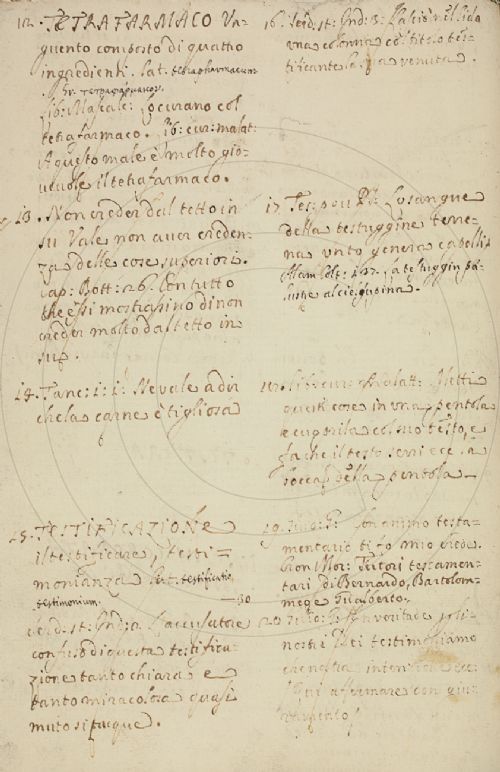 12. TETRAFARMACO Un-
guento composto di quattro
ingredienti. Lat. tetrapharmacum
lib: Mascalc: Si curano col
tetrafarmaco. lib: cur: malat:
A questo male è molto gio-
uevole il tetrafarmaco.
13. Non creder dal tetto in
su Vale non auer creden-
za delle cose superiori.
cap: Bott: 26. Con tutto
che essi mostrasino di non
creder molto dal tetto in
su.
14. Tanc: 1: 1: Ne vale a dir
che la carne è tigliosa
15. TESTIFICAZIONE
il testificare, testi=
monianza Lat. testificatio
testimonium.
Serd. st: Ind: 2. L'accusatore
confuso di questa testifica-
zione tanto chiara e
tanto miracolosa quasi
muto si tacque.
16. Serd. st: Ind: 3. Lasciò nel lido
una colonna col titolo tes-
tificante la sua venuta.
17. Tes: pou: Lo sangue
della testuggine terre-
na unto genera capelli
la testuggin pa-
lustre
18. Metti
queste cose in una pentola
e cuoprila col suo testo, e
fa che il testo
bocca della pentola
19. Con animo testa-
mentario ti fo mio erede.
tutori testamen-
tari di Bernardo, Bartolom-
meo e Gualberto.
20. la verità de
nostri testimoniamo
che nostra
affermare con giu-
ramento